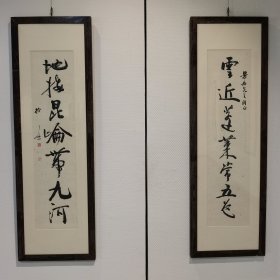 雲近蓬萊常五色
地接昆崙帶九河